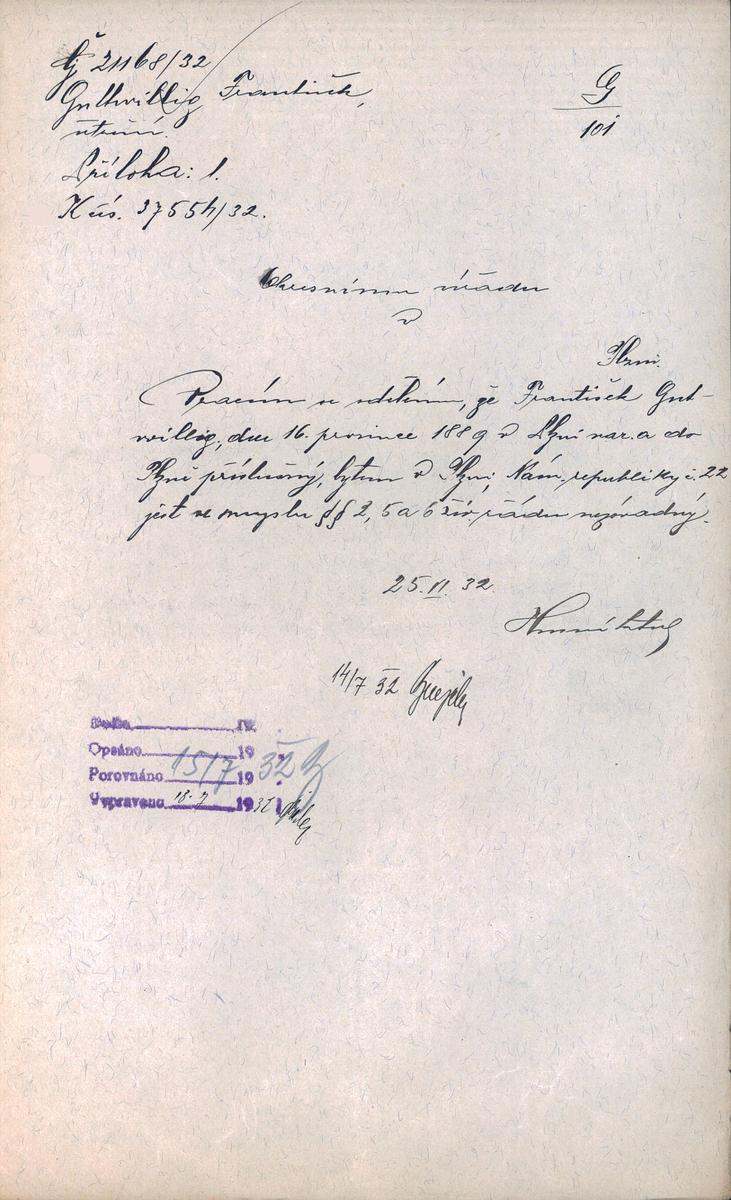 Čj 21168/32
Guttwillig František,
Příloha: 1.
37554/32.
G
101
Okresnímu úřadu
v
Plzni.
Vracím se sdělením, že František Gut-
willig, dne 16. prosince 1889 v Plzni nar. a do
Plzně příslušný, bytem v Plzni, Nám. republiky č. 22
jest ve smyslu §§ 2, 5 a 6 živ. řádu nezávadný.
25.VI. 32.
14/7 32
19
Opsáno 19
Porovnáno 15/7 1932
Vypraveno 18.7 1932